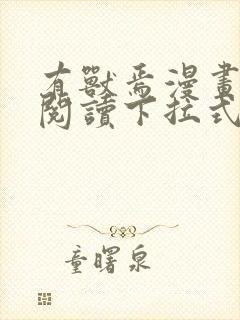 有獸焉漫畫
閱讀下拉式
童曙泉